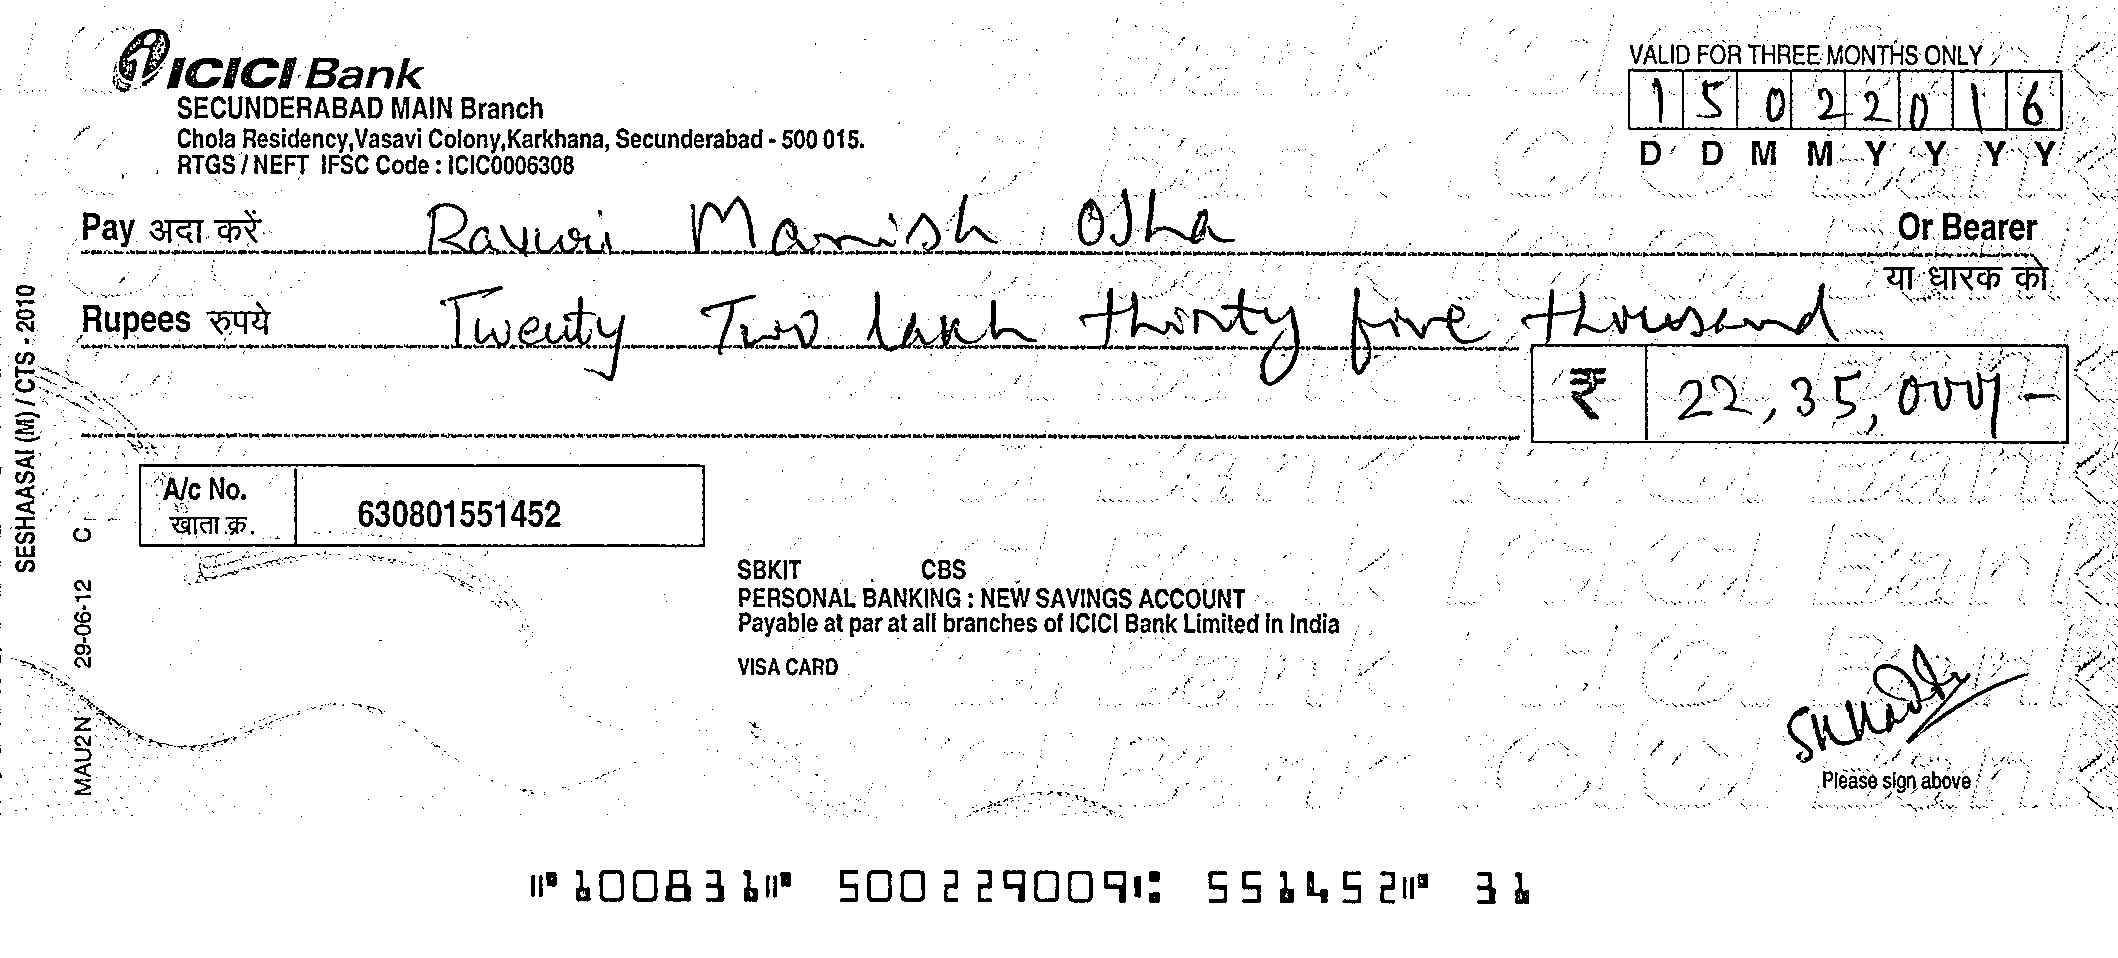 ICICI Bank
SECUNDERABAD MAIN Branch
Chola Residency,Vasavi Colony,Karkhana, Secunderabad - 500 015.
RTGS / NEFT IFSC Code : ICIC0006308
VALID FOR THREE MONTHS ONLY
1 5 0 2 2 0 1 6
D D M M Y Y Y Y
Pay अदा करें Manish Ojha Or Bearer
या धारक को
Rupees रुपये Twenty Two lakh thirty five thousand
₹ 22,35,000/-
A/c No. 630801551452
खाता क्र.
SBKIT CBS
PERSONAL BANKING : NEW SAVINGS ACCOUNT
Payable at par at all branches of ICICI Bank Limited in India
VISA CARD
Please sign above
SESHAASAI (M) / CTS - 2010
MAU2N 29-06-12 C
⑈100831⑈ 500229009⑆ 551452⑈ 31